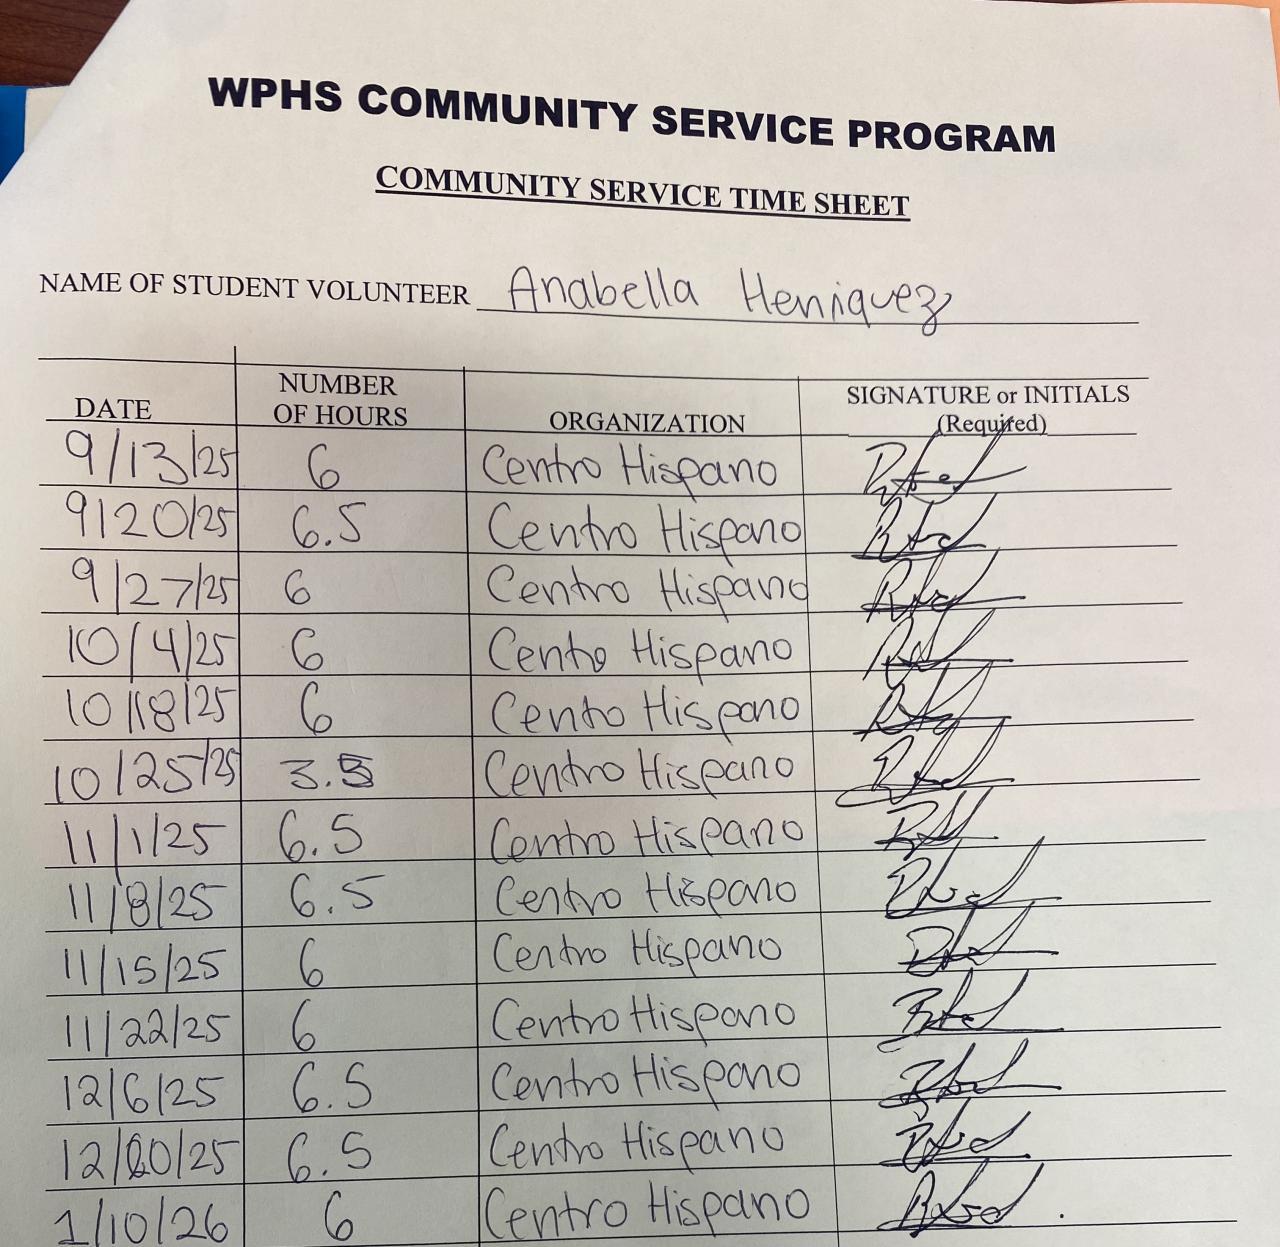 WPHS COMMUNITY SERVICE PROGRAM
COMMUNITY SERVICE TIME SHEET
NAME OF STUDENT VOLUNTEER Anabella Henriquez
DATE NUMBER OF HOURS ORGANIZATION SIGNATURE or INITIALS (Required)
9/13/25 6 Centro Hispano
9/20/25 6.5 Centro Hispano
9/27/25 6 Centro Hispano
10/4/25 6 Centro Hispano
10/18/25 6 Centro Hispano
10/25/25 3.5 Centro Hispano
11/1/25 6.5 Centro Hispano
11/8/25 6.5 Centro Hispano
11/15/25 6 Centro Hispano
11/22/25 6 Centro Hispano
12/6/25 6.5 Centro Hispano
12/20/25 6.5 Centro Hispano
1/10/26 6 Centro Hispano